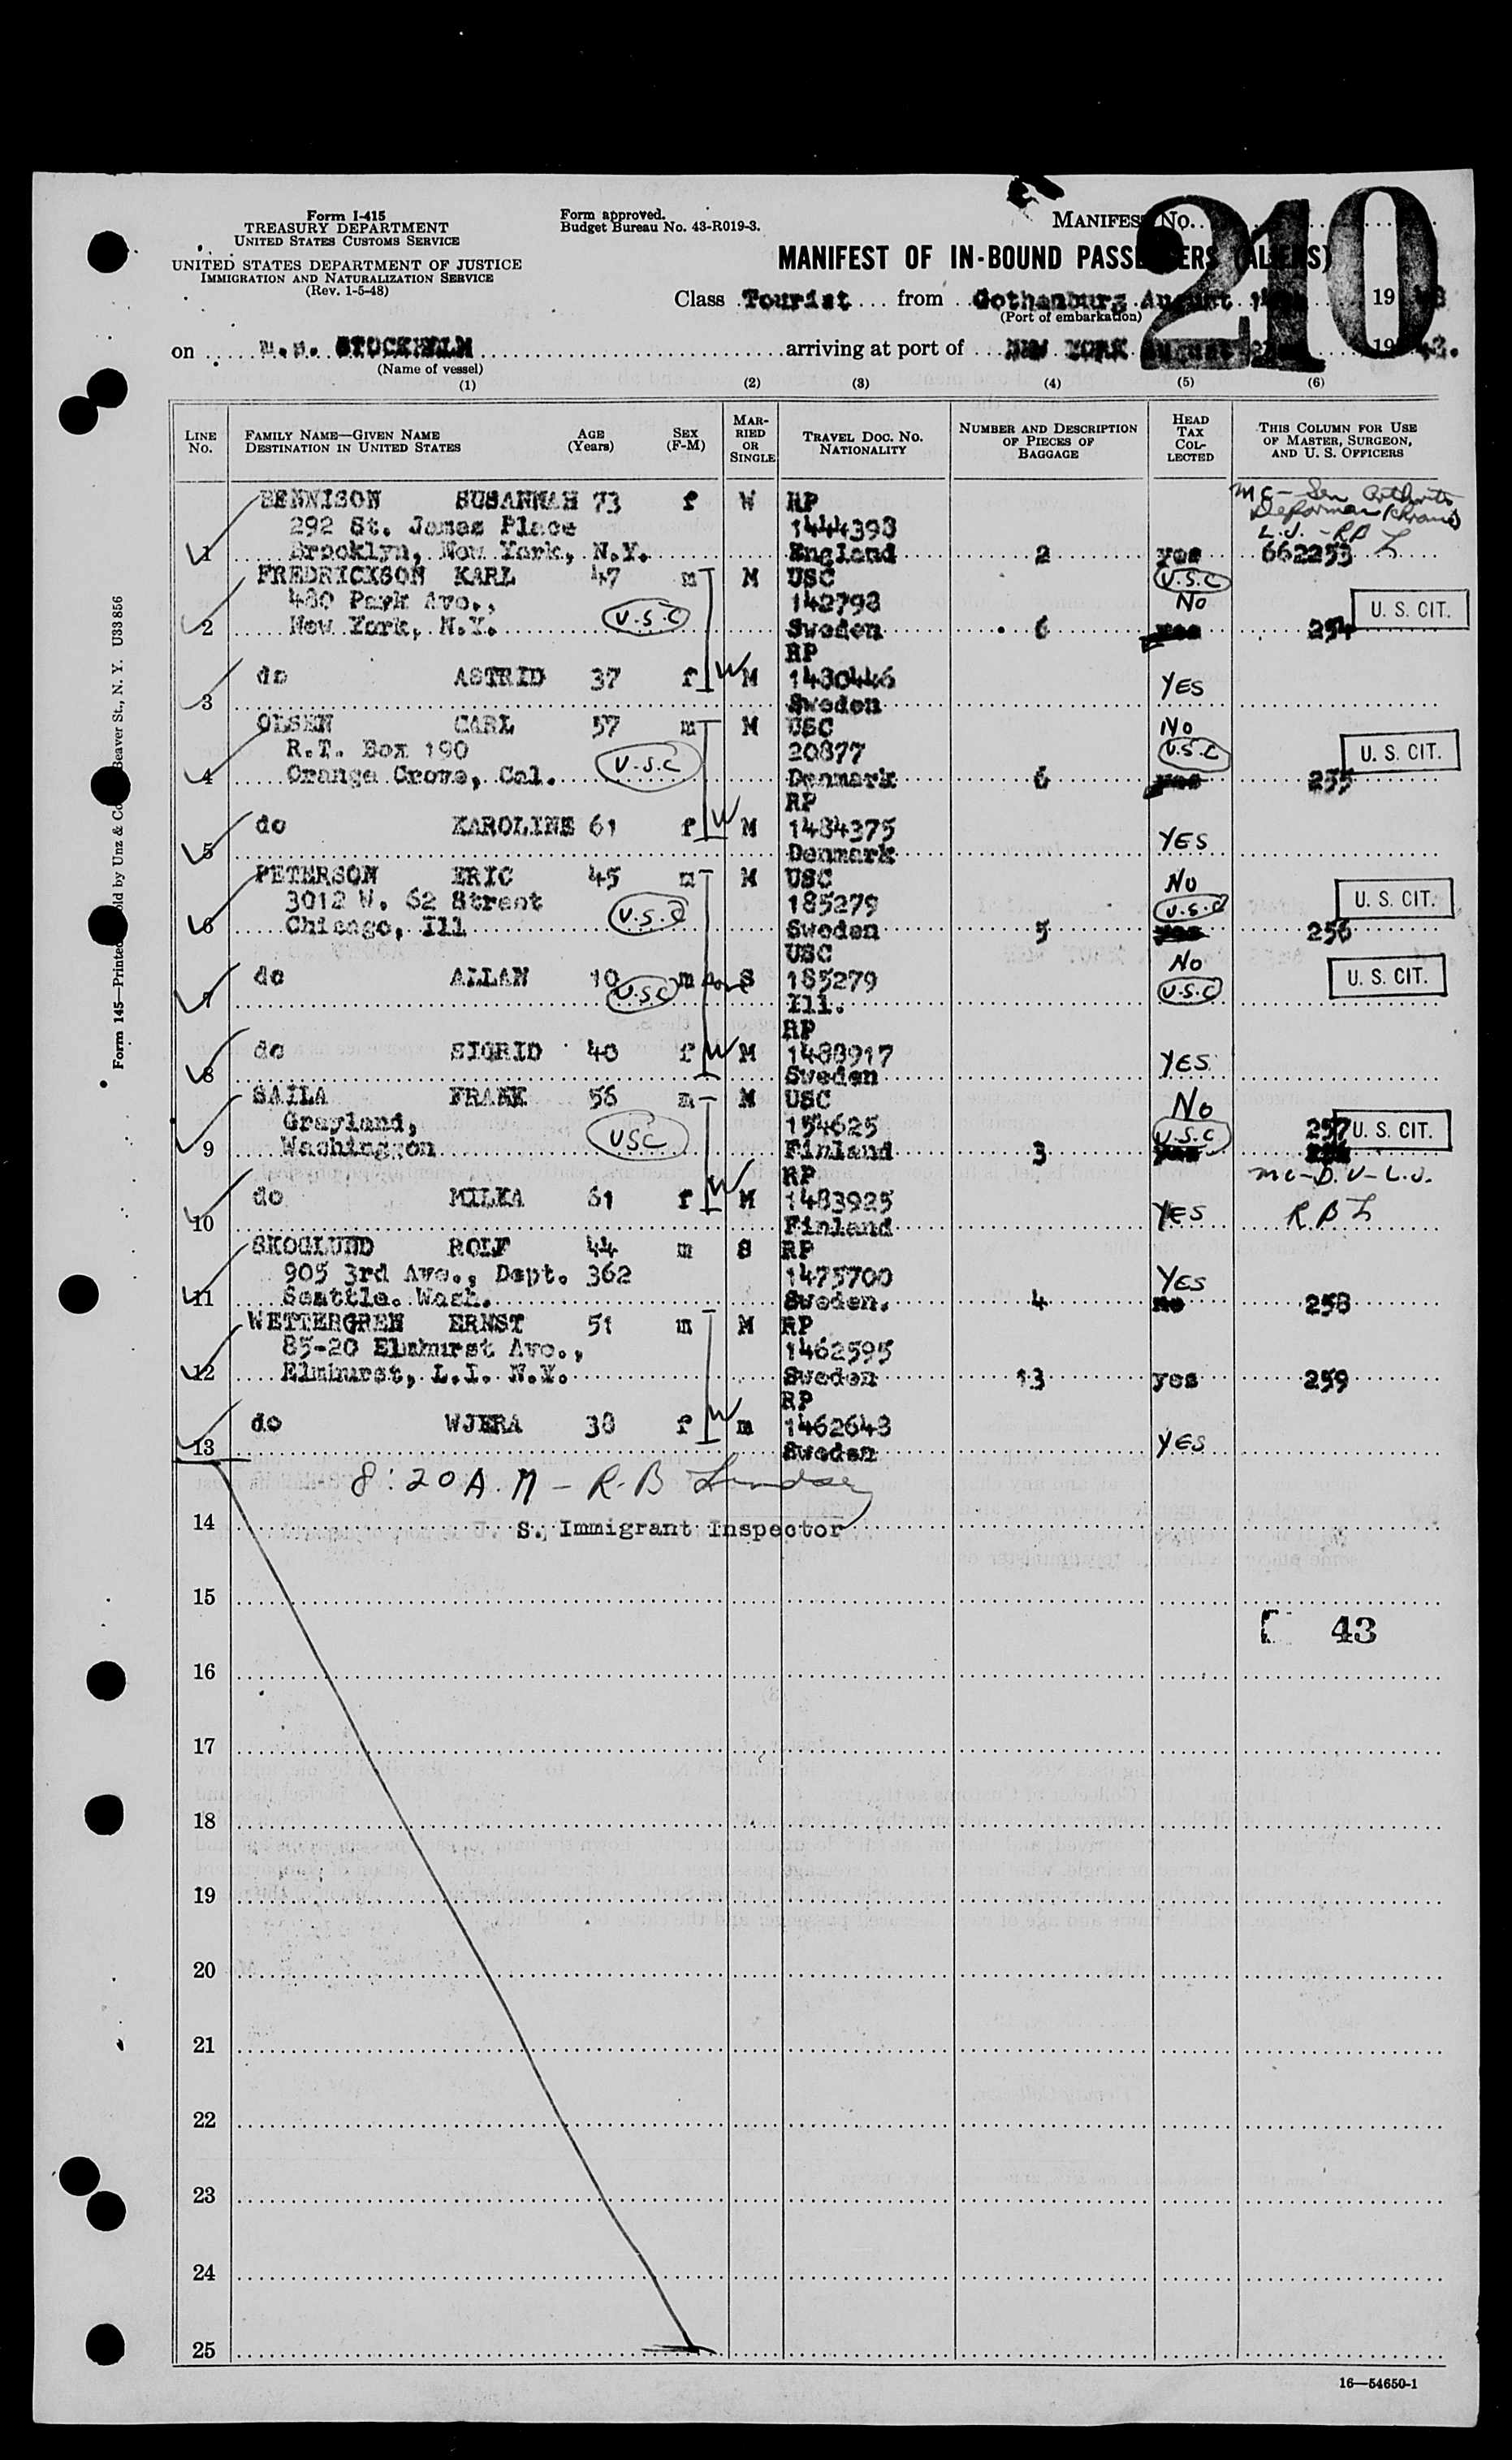 Form I-415
TREASURY DEPARTMENT
UNITED STATES CUSTOMS SERVICE
UNITED STATES DEPARTMENT OF JUSTICE
IMMIGRATION AND NATURALIZATION SERVICE
(Rev. 1-5-48)
Form approved.
Budget Bureau No. 43-R019-3.
MANIFEST No.
210
MANIFEST OF IN-BOUND PASSENGERS (ALIENS)
Class Tourist from Gothenburg August 19
(Port of embarkation)
on m.s. STOCKHOLM arriving at port of NEW YORK August 19 48.
(Name of vessel)
(1) (2) (3) (4) (5) (6)
LINE No. FAMILY NAME—GIVEN NAME DESTINATION IN UNITED STATES AGE (Years) SEX (F-M) MARRIED OR SINGLE TRAVEL DOC. No. NATIONALITY NUMBER AND DESCRIPTION OF PIECES OF BAGGAGE HEAD TAX COLLECTED THIS COLUMN FOR USE OF MASTER, SURGEON, AND U. S. OFFICERS
BENNISON SUSANNAH 73 f W RP MC - Sen Arthritis
292 St. James Place 1444398 L.J. - RB L
1 Brooklyn, New York, N.Y. England 2 yes 662253
FREDRICKSON KARL 47 m M USC U.S.C
480 Park Ave., U.S.C 142798 No
2 New York, N.Y. Sweden 6 yes 254 U. S. CIT.
RP
do ASTRID 37 f W M 1480446 YES
3 Sweden
OLSEN CARL 57 m M USC No
R.T. Box 190 U.S.C 20877 U.S.C
4 Orange Crove, Cal. Denmark 6 yes 255 U. S. CIT.
RP
do KAROLINE 61 f W M 1484375 YES
5 Denmark
PETERSON ERIC 45 m M USC No
3012 W. 62 Street U.S.C 185279 U.S.C
6 Chicago, Ill Sweden 5 yes 256 U. S. CIT.
USC No
do ALLAN 10 m son S 185279 U. S. CIT.
7 U.S.C Ill. U.S.C
RP
do SIGRID 40 f W M 1488917 YES
8 Sweden
SAILA FRANK 56 m M USC No
Grayland, USC 154625 U.S.C 257 U. S. CIT.
9 Washington Finland 3 yes
RP MC-D.V-L.J.
do MILKA 61 f W M 1483925 YES R B L
10 Finland
SKOGLUND ROLF 44 m S RP
905 3rd Ave., Dept. 362 1475700 YES
11 Seattle. Wash. Sweden. 4 no 258
WETTERGREN ERNST 51 m M RP
85-20 Elmhurst Ave., 1462595
12 Elmhurst, L.I. N.Y. Sweden 13 yes 259
RP
do WJERA 38 f W m 1462648 YES
13 Sweden
8:20 A.M - R.B Lindsey
14 S. Immigrant Inspector
15
43
16
17
18
19
20
21
22
23
24
25
16—54650-1
Form 145—Printed old by Unz & Co Beaver St., N. Y. U33 856